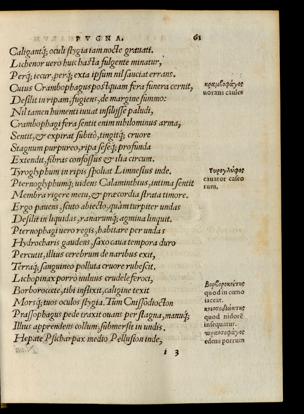 PVGNA. 61
Caligantq; oculi stygia tam nocte grauati.
Lichenor uero huic hasta fulgente minatur,
Perq; iecur, perq; exta ipsum nil sauciat errans.
Cuius Crambophagus postquam fera funera cernit,
Desilit in ripam, fugiens, de margine summo:
Nil tamen humenti iuuat insilisse paludi,
Crambophagi fera sentit enim nihilominus arma,
Sentit, & expirat subito, tingitq; cruore
Stagnum purpureo, ripa seseq; profunda
Extendit, fibras confossus & ilia circum.
Tyroglyphum in ripis spoliat Limnesius inde.
Pternoglyphumq; uidens Calaminthius, intima sentit
Membra rigere metu, & præcordia fixa timore.
Ergo pauens, scuto abiecto, quàm turpiter undas
Desilit in liquidas, ranarumq; agmina linquit.
Pternophagi uero regis, habitare per undas
Hydrocharis gaudens, saxo caua tempora duro
Percutit, illius cerebrum de naribus exit,
Terraq; sanguineo polluta cruore rubescit.
Lichopinax porro induuis crudele feroci,
Borborocœte, tibi inflixit, caligine texit
Morsq; tuos oculos stygia. Tum Cnissodiocton
Prassophagus pede traxit ouans per stagna, manuq;
Illius apprendens collum, submersit in undis.
Hepate Psicharpax medio Pellusion inde,
κραμβοφάγος
uorans caules
τυρογλύφος
cauator caseorum.
Βορβοροκοίτης
quod in cœno
iaceat.
κνισσοδιώκτης
quod nidorē
insequatur.
πρασσοφάγος
edens porrum
i 3